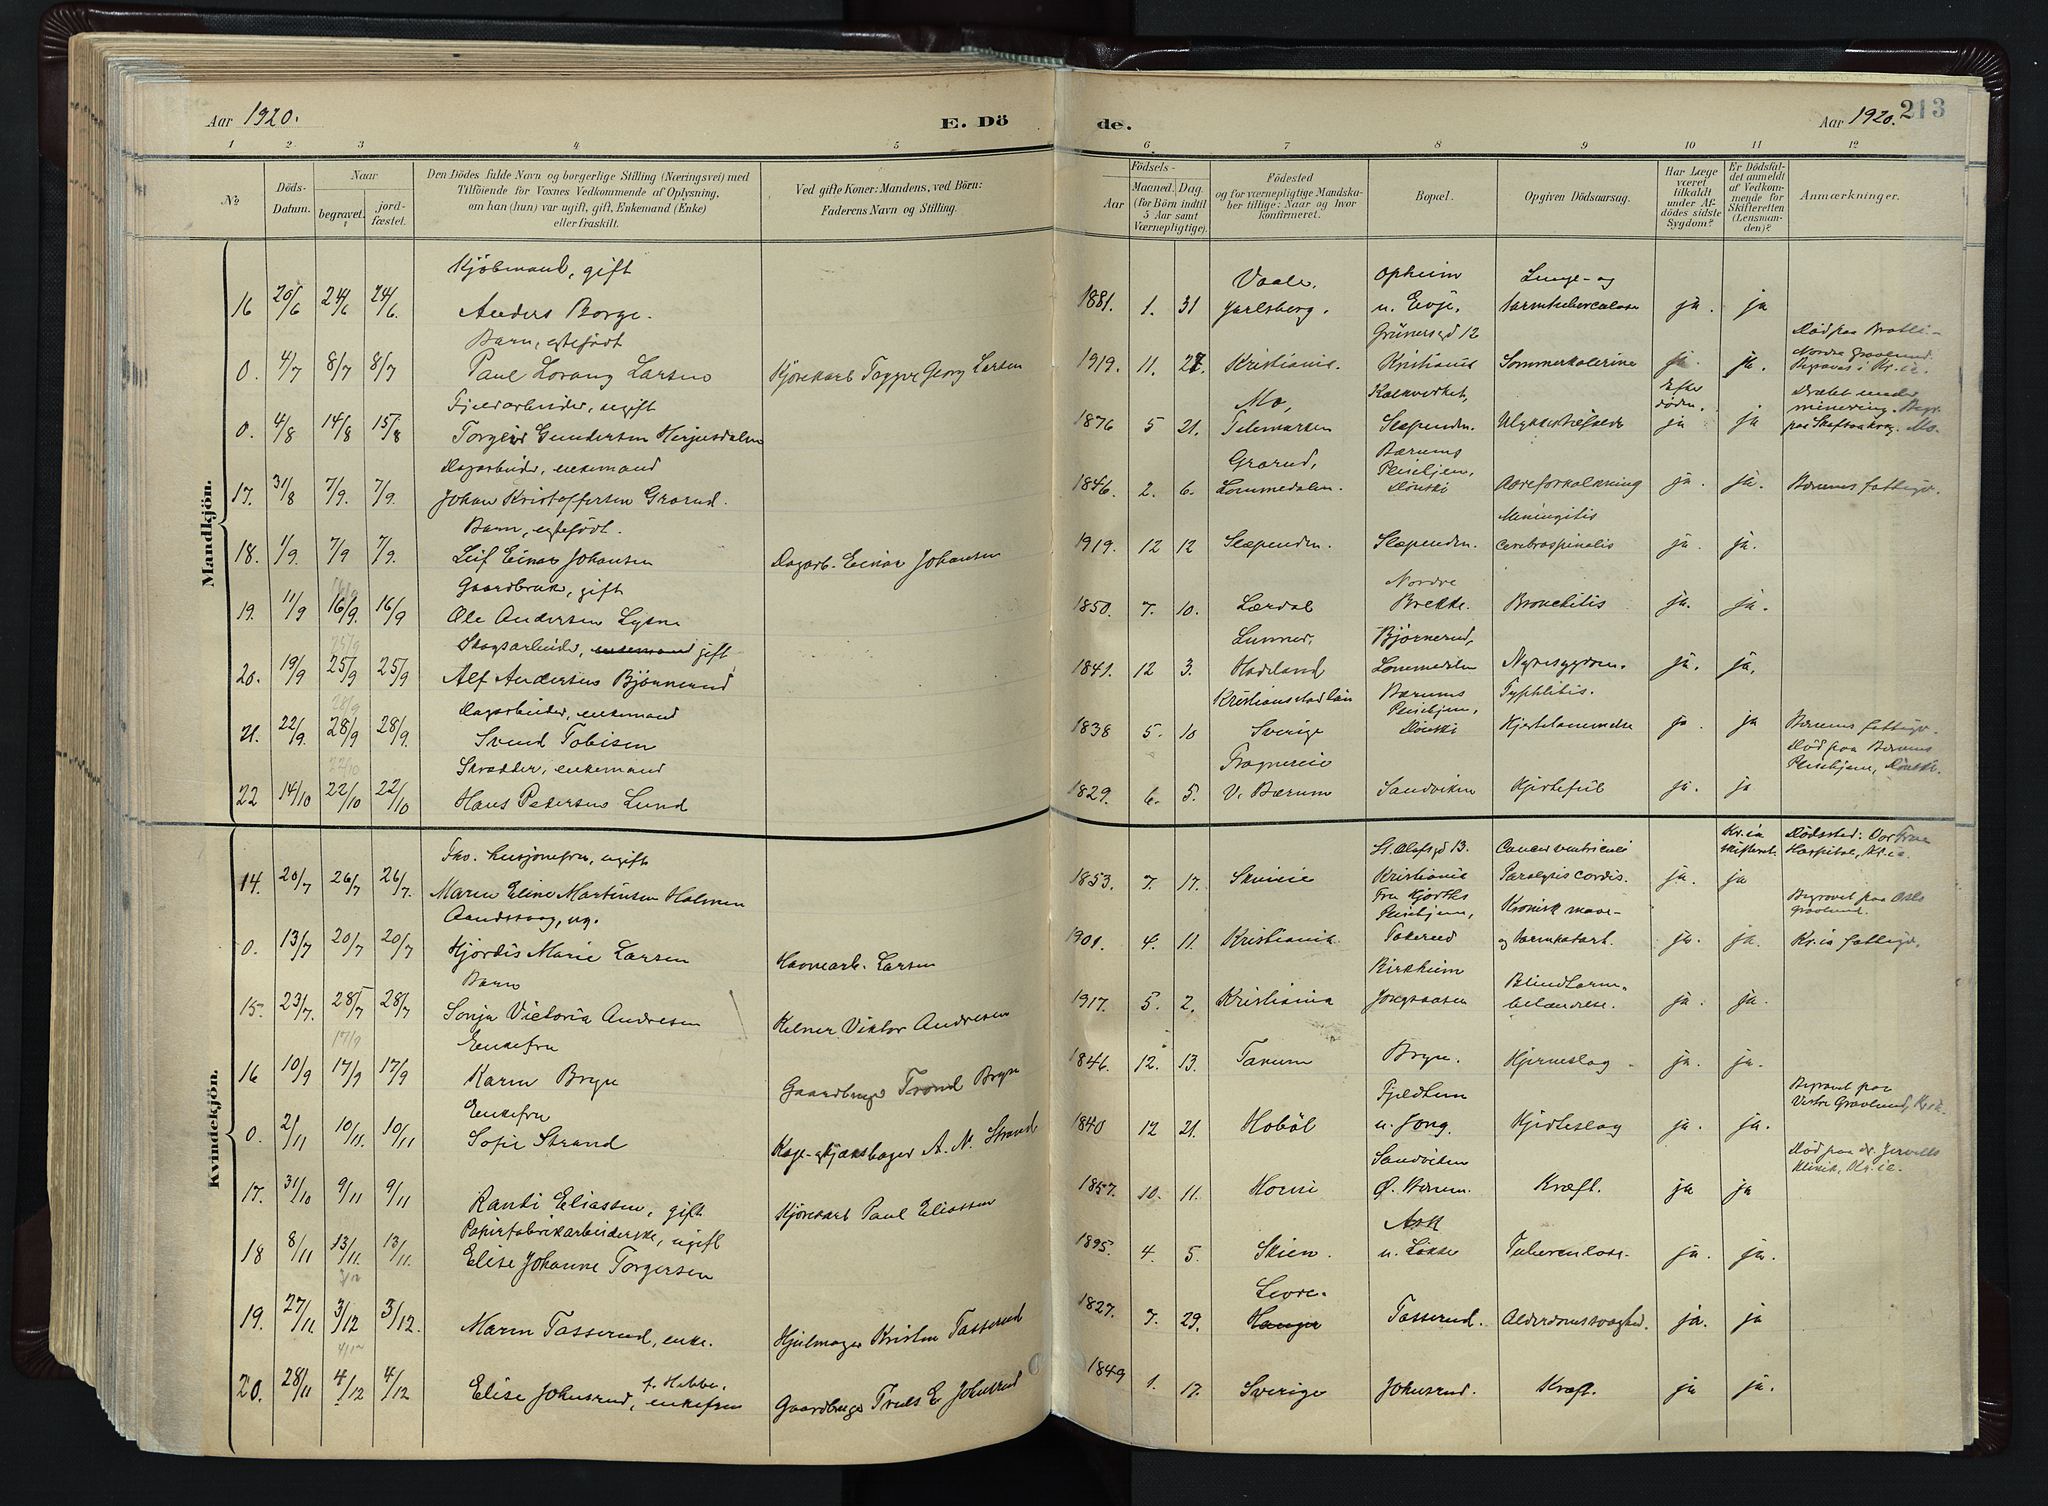 Aar 1920.
E. Dö
de.
Aar 1920.
213
1 2 3 4 5 6 7 8 9 10 11 12
No
Döds-Datum.
Naar
begravet.
jordfæstet.
Den Dödes fulde Navn og borgerlige Stilling (Næringsvei) med
Tilföiende for Voxnes Vedkommende af Oplysning,
om han (hun) var ugift, gift, Enkemand (Enke)
eller fraskilt.
Ved gifte Koner: Mandens, ved Börn:
Faderens Navn og Stilling.
Födsels-
Aar
Maaned. Dag.
(for Börn indtil
5 Aar samt
Værnepligtige).
Födested
og for værnepligtige Mandska-
ber tillige: Naar og hvor
konfirmeret.
Bopæl.
Opgiven Dödsaarsag.
Har Læge
været
tilkaldt
under Af-
dödes sidste
Sygdom?
Er Dödsfal-
det anmeldt
af Vedkom-
mende for
Skifteretten
(Lensman-
den)?
Anmærkninger.
Mandkjön.
Kjöbmand, gift
16 20/6 24/6 24/6. Anders Borge. 1881. 1. 31 Vaale, Jarlsberg. Opheim u. Evje. Lunge- og tarmtuberculose ja. ja
Barn, egtefödt
0. 4/7 8/7 8/7 Paul Lorang Larsen Kjörekarl Trygve Georg Larsen 1919. 11. 27. Kristiania. Grünersgd 12 Kristiania Sommerkolerine ja. ja. Nordre Gravlund. Begraves i Kr.ia.
Fjeldarbeider, ugift
0. 4/8 14/8 15/8 Torgeir Gundersen Herjusdalen 1876 5 21. Mo, Telemarken Kalkverket, Slependen. Ulykkestilfælde Efter döden. ja ja Dræbt under minering. Begr. paa Skafsaa krog. Mo.
Dagarbeider, enkemand
17. 31/8 7/9. 7/9. Johan Kristoffersen Grorud. 1846. 2. 6. Grorud, Lommedalen. Bærums Pleiehjem, Dönski Aareforkalkning ja. ja. Bærums fattigv.
Barn, egtefödt.
18. 1/9. 7/9 7/9. Leif Einar Johansen Dagarb. Einar Johansen 1919. 12 12 Slependen. Slependen. Meningitis cerebrospinalis ja. ja.
Gaardbruk, gift
19. 11/9 16/9. 16/9 Ole Andersen Lysne 1850. 7. 10. Lærdal Nordre Brekke. Bronchitis ja. ja.
Skogsarbeider, enkemand gift
20. 19/9 25/9 25/9 Alf Andersen Bjönnerud 1841. 12 3. Lunner, Hadeland Bjørnerud, Lommedalen Nyresygdom. ja. ja.
Dagarbeider, enkemand
21. 22/9. 28/9 28/9. Svend Tobisen 1838 5. 10 Kristiansstad län Sverige Bærums Pleiehjem, Dönski Typhlitis. Hjertelammelse ja. ja Bærums fattigv.
Skrædder, enkemand
22 14/10 22/10 22/10 Hans Petersen Lund 1829. 6. 5. Fragnereie V. Bærum Sandviken Hjertefeil ja. ja Död paa Bærums Pleiehjem, Dönski.
Kvindekjön.
Fhv. husjomfru, ugift
14. 20/7 26/7 26/7. Maren Eline Martinsen Holmen 1853. 7. 17. Skuieie St. Olafsgd 13. Kristiania Cancer ventriculi Paralysis cordis. ja. Kr.ia skifteret. ja Dödssted: Vor Frue Hospital, Kr.ia.
Aandssvag, ug.
0. 13/7 20/7 20/7 Hjördis Marie Larsen Havnearb. Larsen 1901. 4. 11. Kristiania. Fru Hjorths Pleiehjem, Tokerud Kronisk mave- og tarmkatarh. ja. ja. Begravet paa Oslo gravlund. Kr.ia fattigv.
Barn
15. 23/7. 28/7 28/7 Sonja Victoria Andresen Kelner Viktor Andresen 1917. 5. 2. Kristiania Birkheim Jongsaasen Blindtarmbetændelse. ja. ja.
Enkefru
16 10/9 17/9 17/9 Karen Bryn Gaardbruger Trond Bryn 1846. 12. 13. Tanum Bryn. Hjerneslag ja. ja.
Enkefru
0. 2/11 10/11. 10/11 Sofie Strand Kage- og kjeksbager A. N. Strand 1840 12 21. Hobøl Fjeldhem u. Jong. Hjerteslag ja. ja. Begravet paa Vestre Gravlund, Kr.ia.
17. 31/10 9/11 9/11 Randi Eliassen, gift Kjörekarl Paul Eliassen 1857. 10. 11. Sandviken Ø. Bærum. Kræft. ja ja Död paa dr. Jervells Klinik, Kr.ia.
Papirfabrikarbeiderske, ugift
18 8/11 13/11. 13/11. Elise Johanne Torgersen 1895. 4. 5. Skien. Ask u. Løkke Tuberculose. ja. ja.
19. 27/11. 3/12 3/12. Maren Tasserud, enke. Hjulmager Kristen Tasserud 1827. 7. 29. Levre. Tasserud. Alderdomssvaghed. ja. ja
20. 28/11 4/12 4/12 Elise Johnsrud, f. Hebbe, enkefru Gaardbruger Truls E. Johnsrud 1849 1. 17. Sverige Johnsrud. Kræft. ja ja.